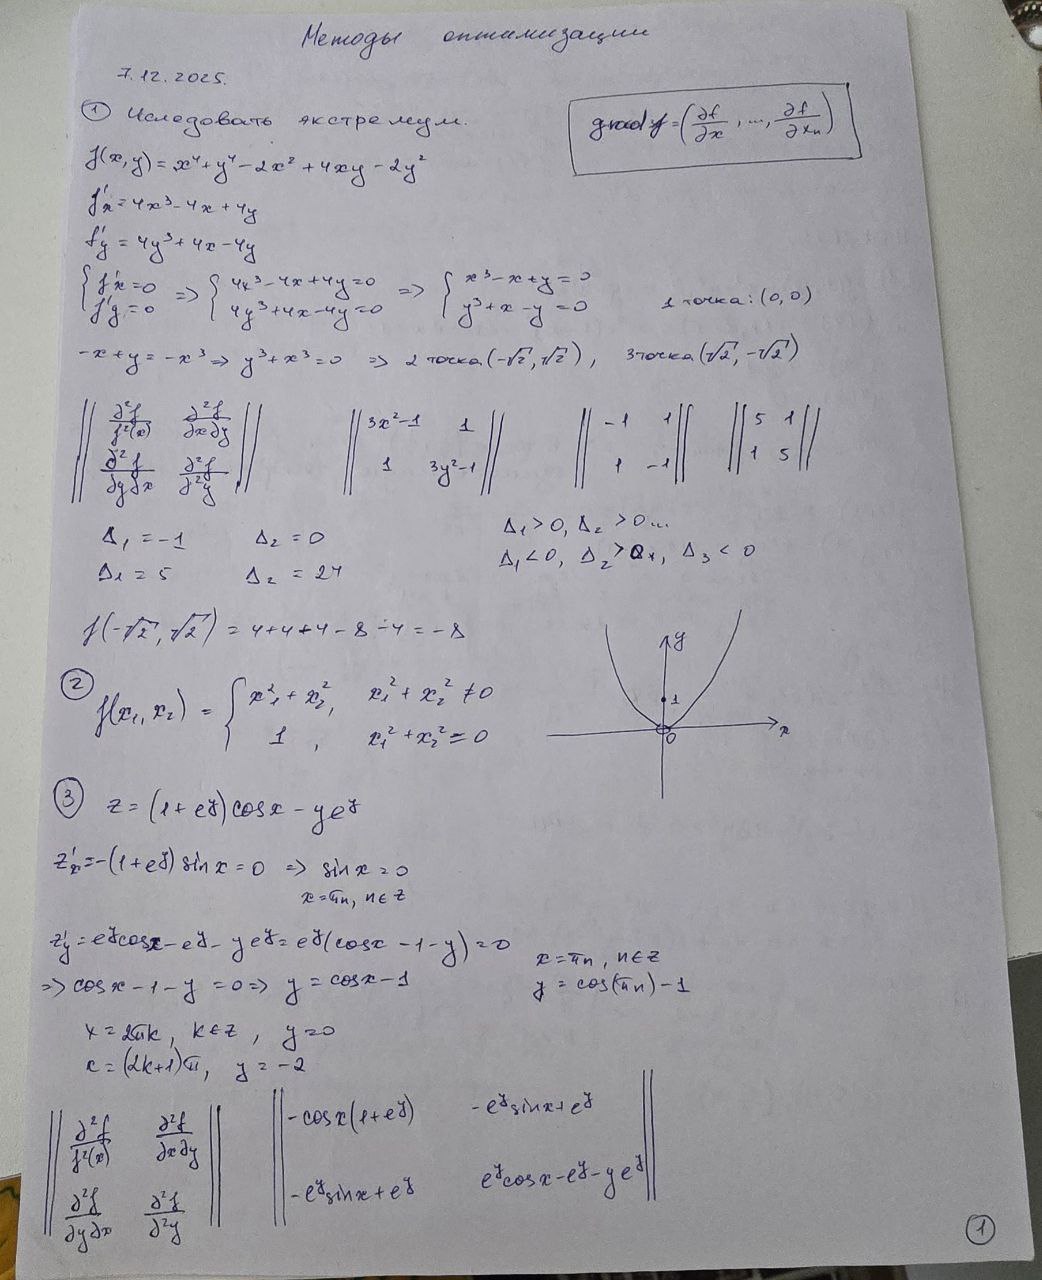 Методы оптимизации
7.12.2025.
① Иследовать экстремум.
grad f = (∂f/∂x, ..., ∂f/∂xₙ)
f(x,y) = x⁴ + y⁴ - 2x² + 4xy - 2y²
f'x = 4x³ - 4x + 4y
f'y = 4y³ + 4x - 4y
{ f'x = 0 ; f'y = 0 => { 4x³ - 4x + 4y = 0 ; 4y³ + 4x - 4y = 0 => { x³ - x + y = 0 ; y³ + x - y = 0   1 точка: (0,0)
-x + y = -x³ => y³ + x³ = 0 => 2 точка (-√2, √2), 3 точка (√2, -√2)
|| ∂²f/f²(x)  ∂²f/∂x∂y ||   || 3x²-1  1 ||   || -1  1 ||   || 5  1 ||
|| ∂²f/∂y∂x  ∂²f/∂²y ||   || 1  3y²-1 ||   || 1  -1 ||   || 1  5 ||
Δ₁ = -1   Δ₂ = 0   Δ₁ > 0, Δ₂ > 0 ...
Δ₁ = 5   Δ₂ = 24   Δ₁ < 0, Δ₂ > 0, Δ₃ < 0
f(-√2, √2) = 4+4+4-8-4 = -8
② f(x₁, x₂) = { x₁² + x₂², x₁² + x₂² ≠ 0
1, x₁² + x₂² = 0
y
1
0
x
③ z = (1 + eʸ) cos x - yeʸ
z'x = -(1+eʸ) sin x = 0 => sin x = 0
x = πn, n ∈ z
z'y = eʸcosx - eʸ - yeʸ = eʸ(cosx - 1 - y) = 0
x = πn, n ∈ z
=> cosx - 1 - y = 0 => y = cosx - 1   y = cos(πn) - 1
x = 2πk, k ∈ z, y = 0
x = (2k+1)π, y = -2
|| ∂²f/f²(x)  ∂²f/∂x∂y ||   || -cosx(1+eʸ)  -eʸsinx+eʸ ||
|| ∂²f/∂y∂x  ∂²f/∂²y ||   || -eʸsinx+eʸ  eʸcosx-eʸ-yeʸ ||
①